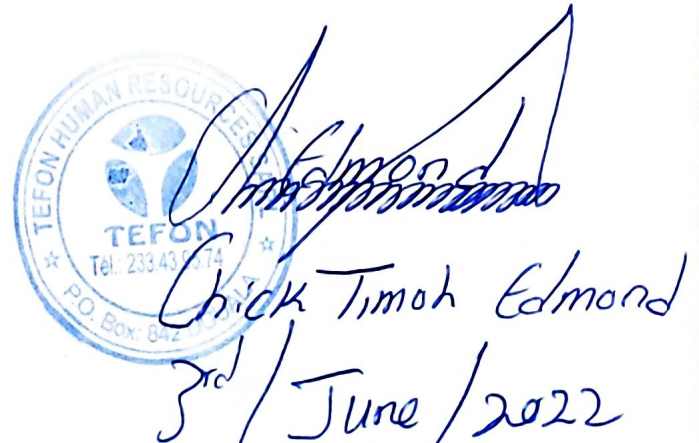 TEFON HUMAN RESOURCES
TEFON
Tél.: 233.43
P.O. Box: 842
Edmond
Chick Timoh Edmond
3rd / June / 2022